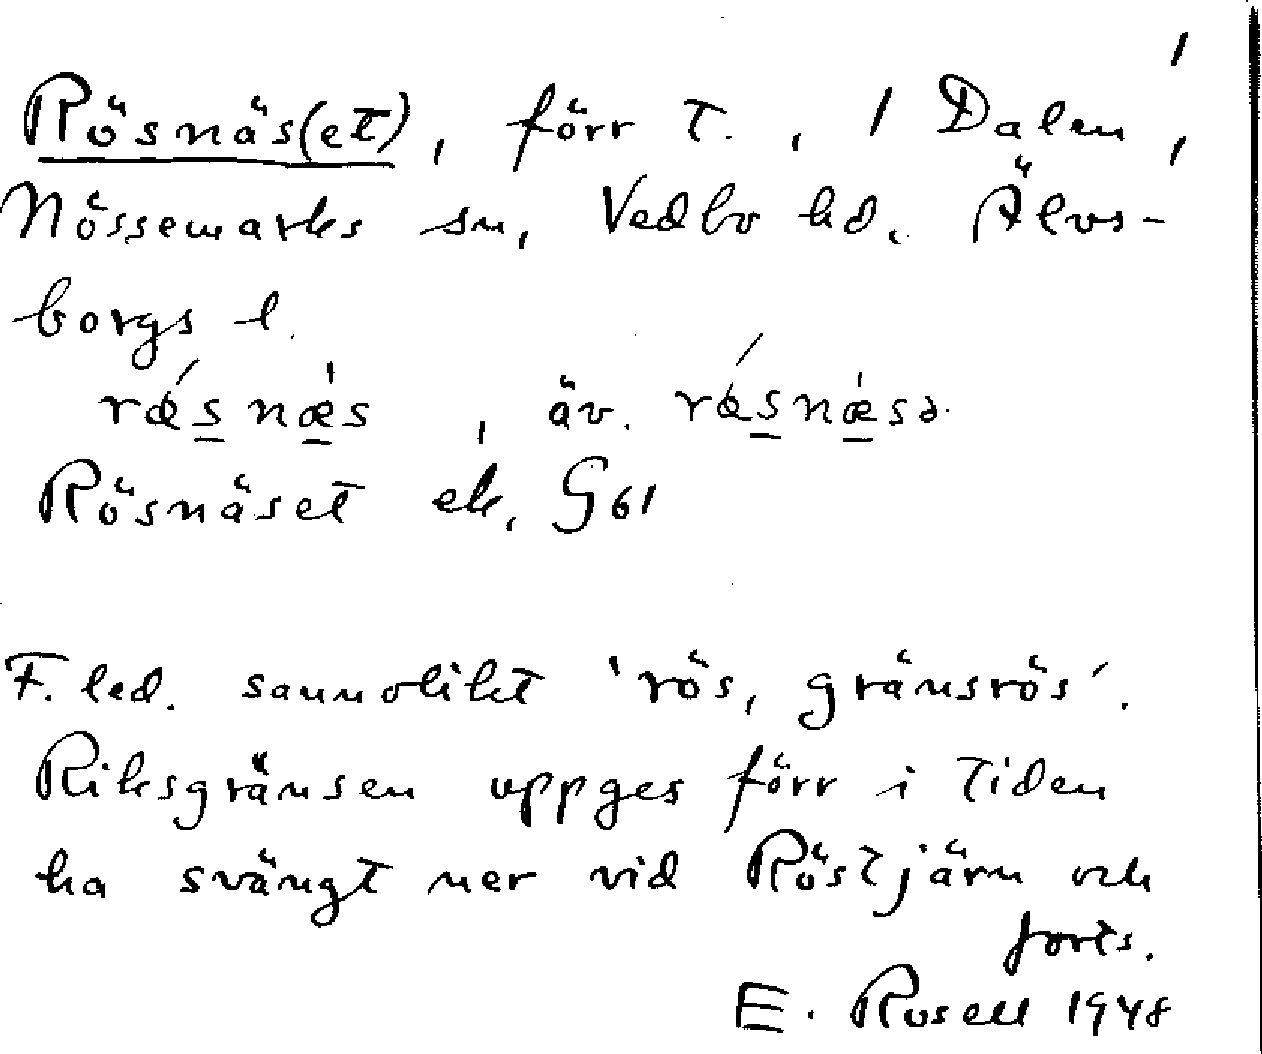 1
Rösnäs(et), förr t., 1 Dalen,
Nössemarks sn, Vedbo hd. Älvs-
borgs l.
rǽsnæ̀s, äv. rǽsnæ̀sə.
Rösnäset ek. G61
F. led. sannolikt 'rös, gränsrös'.
Riksgränsen uppges förr i tiden
ha svängt ner vid Röstjärn och
forts.
E. Rosell 1948